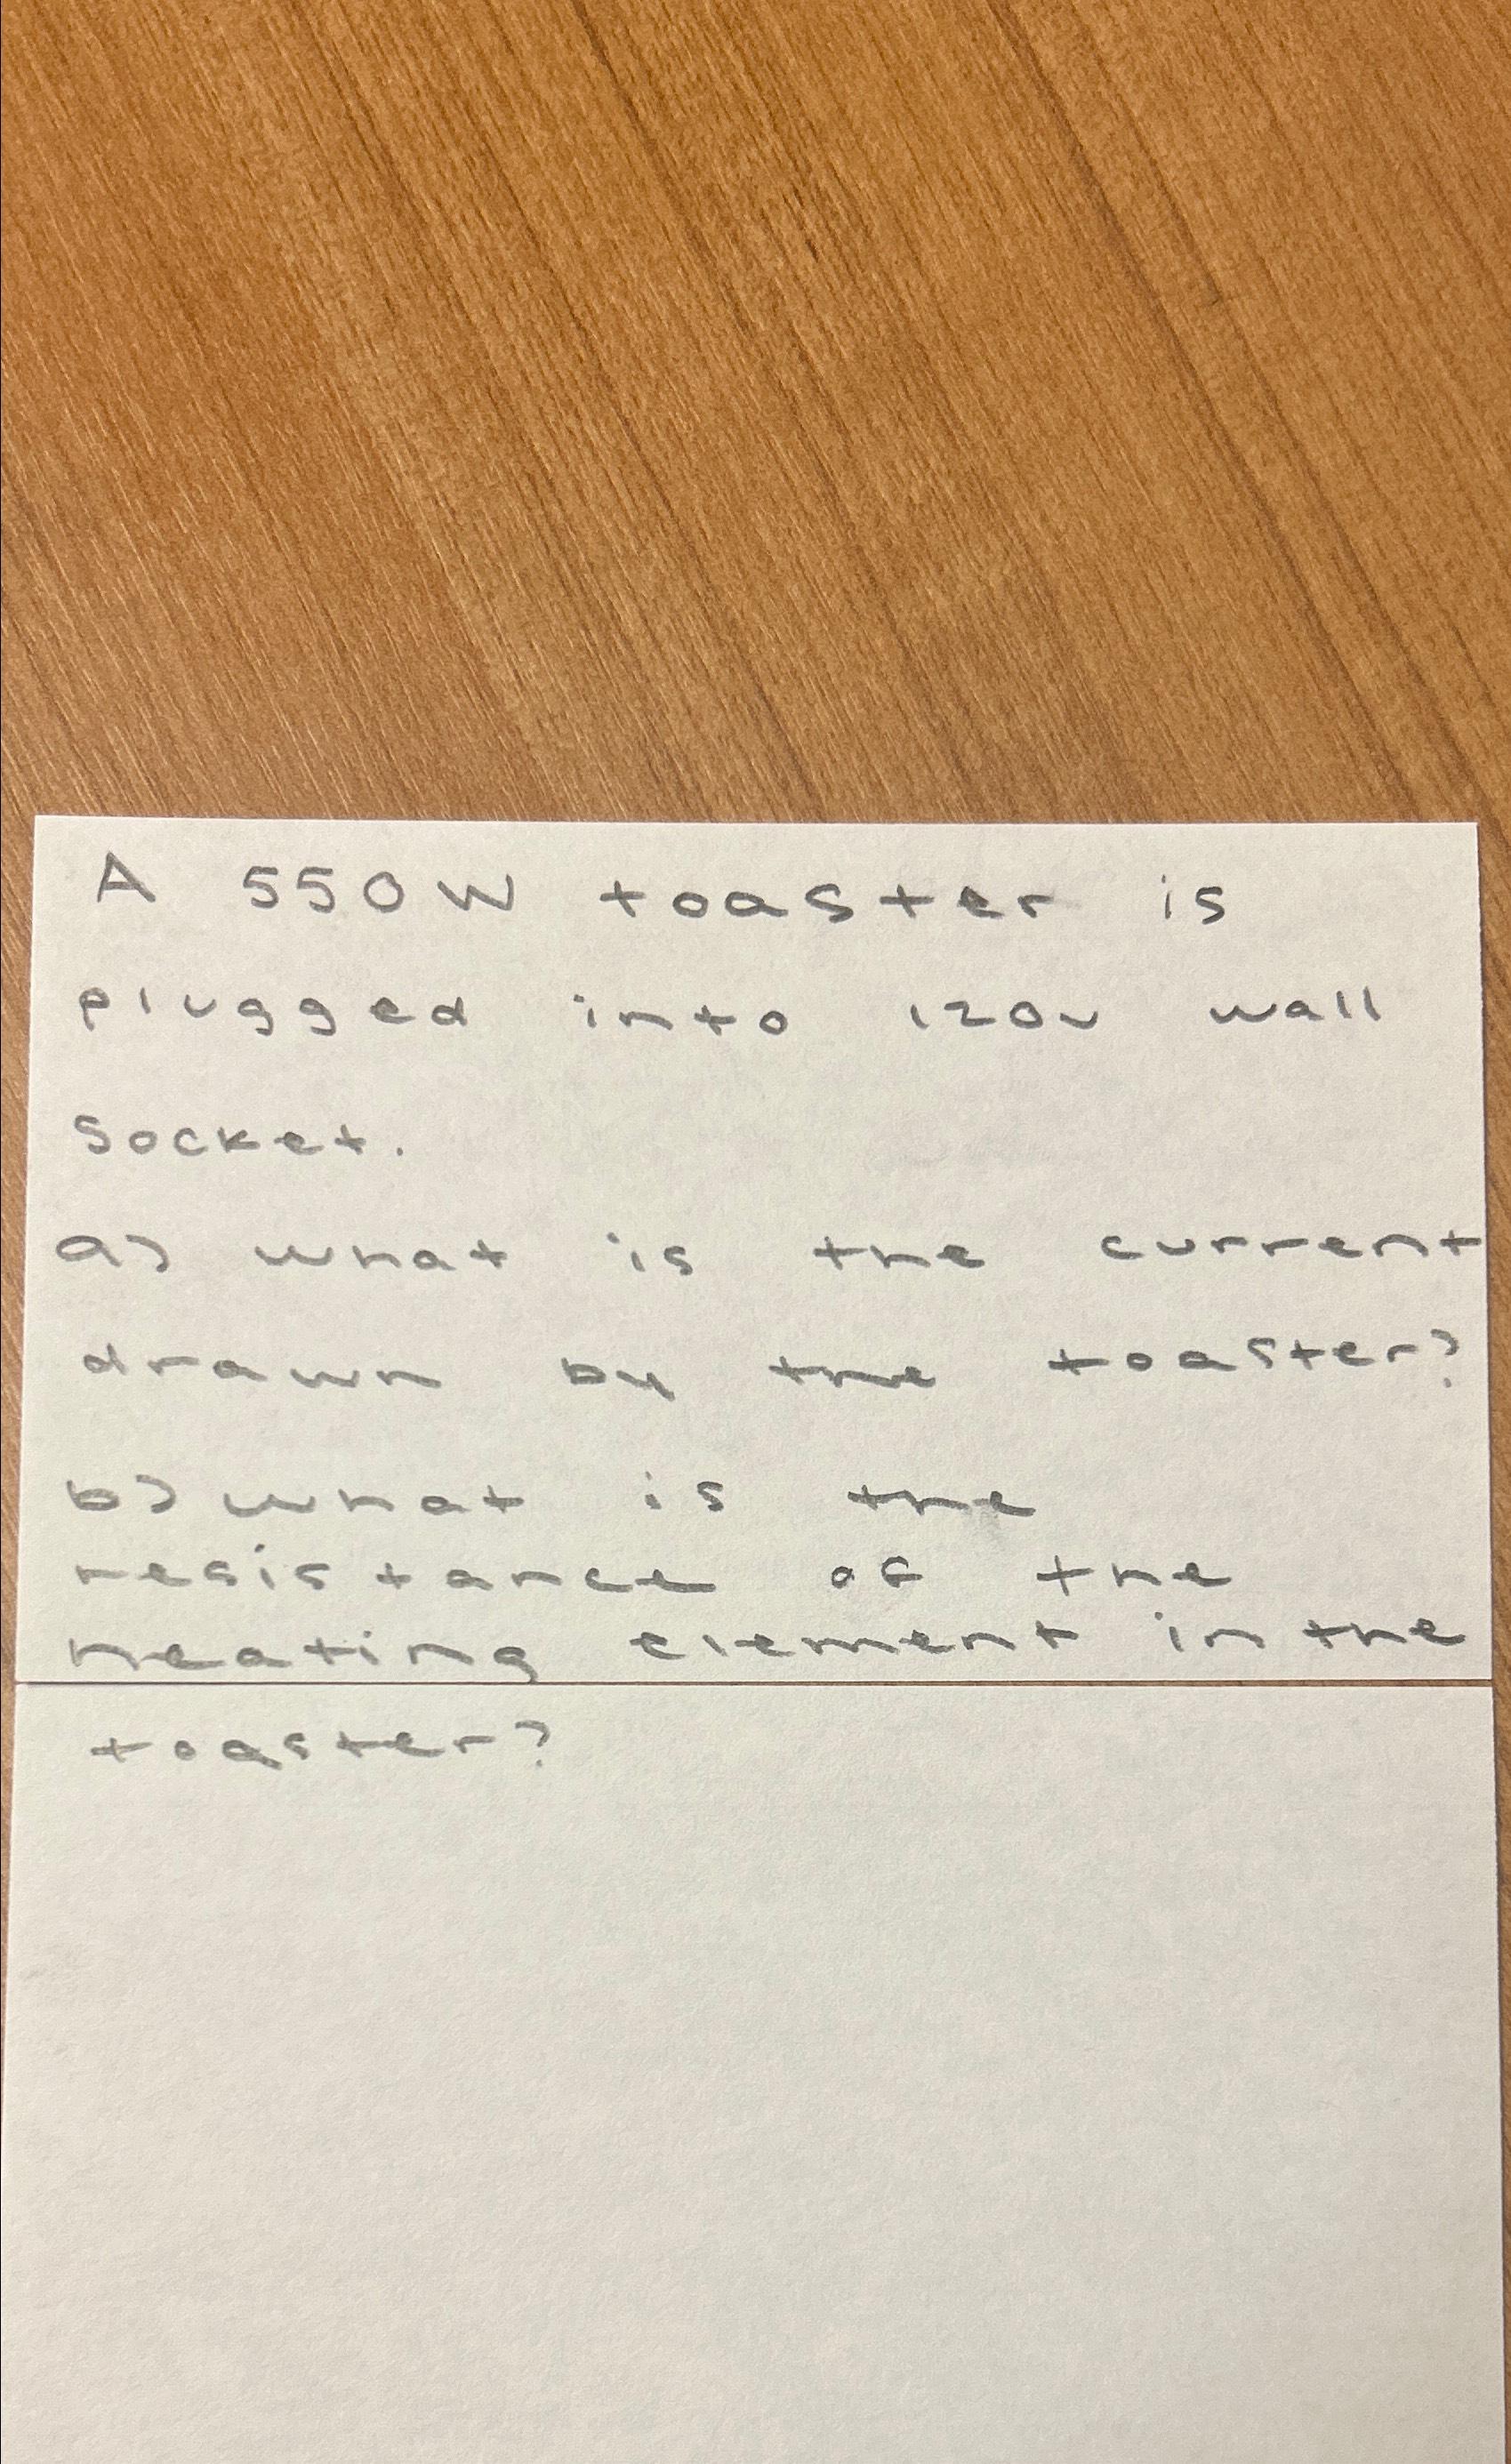 A 550W toaster is
plugged into 120v wall
Socket.
a) what is the current
drawn by the toaster?
b) what is the
resistance of the
heating element in the
toaster?